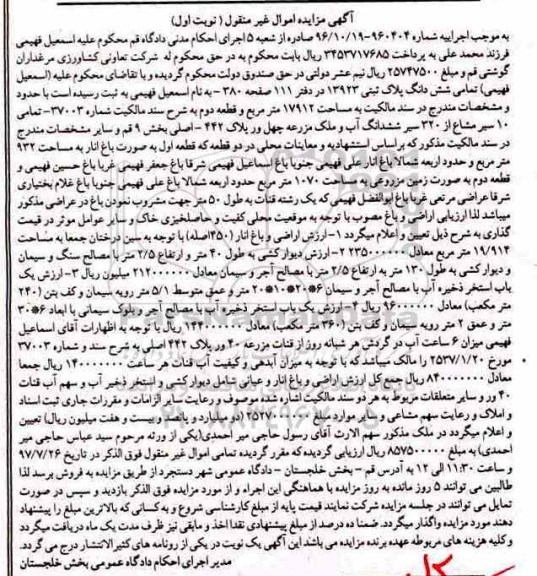 آگهی مزایده اموال غیر منقول ( نوبت اول)
به موجب اجراییه شماره ۹۶۰۴۰۴-۹۶/۱۰/۱۹ صادره از شعبه ۵ اجرای احکام مدنی دادگاه قم محکوم علیه اسمعیل فهیمی
فرزند محمد علی به پرداخت ۳۴۵۳۷۱۷۶۸۵ ریال بابت محکوم به در حق محکوم له شرکت تعاونی کشاورزی مرغداران
گوشتی قم و مبلغ ۲۵۷۴۷۵۰۰ ریال نیم عشر دولتی در حق صندوق دولت محکوم گردیده و با تقاضای محکوم علیه (اسمعیل
فهیمی) تمامی شش دانگ پلاک ثبتی ۱۳۹۲۳ در دفتر ۱۱۱ صفحه ۳۸۰ - به نام اسمعیل فهیمی به ثبت رسیده است با حدود
و مشخصات مندرج در سند مالکیت به مساحت ۱۷۹۱۲ متر مربع و قطعه دوم به شرح سند مالکیت شماره ۳۷۰۰۳- تمامی
۱۰ سیر مشاع از ۳۲۰ سیر ششدانگ آب و ملک مزرعه چهل ور پلاک ۴۴۲ - اصلی بخش ۹ قم و سایر مشخصات مندرج
در سند مالکیت مذکور که براساس استشهادیه و معاینات محلی در دو قطعه که قطعه اول به صورت باغ انار به مساحت ۹۳۲
متر مربع و حدود اربعه شمالا باغ انار علی فهیمی جنوبا باغ اسماعیل فهیمی شرقا باغ جعفر فهیمی غربا باغ حسین فهیمی و
قطعه دوم به صورت زمین مزروعی به مساحت ۱۰۷۰ متر مربع حدود اربعه شمالا باغ علی فهیمی جنوبا باغ غلام بختیاری
شرقا عراضی مرتعی غربا باغ ابوالفضل فهیمی که یک رشته قنات به طول ۵۰ متر جهت مشروب نمودن باغ در عراضی مذکور
میباشد لذا ارزیابی اراضی و باغ مصوب با توجه به موقعیت محلی کفیت و حاصلخیزی خاک و سایر عوامل موثر در قیمت
گذاری به شرح ذیل تعیین و اعلام میگردد ۱-ارزش اراضی و باغ انار (۴۵۰اصله) با توجه به سین درختان جمعا به مساحت
۱۹/۹۱۴ متر مربع معادل ۲-ارزش دیوار کشی به طول ۴۰ متر و ارتفاع ۲/۵ متر با مصالح سنگ و سیمان
و دیوار کشی به طول ۱۳۰ متر به ارتفاع ۲/۵ متر با مصالح آجر و سیمان معادل ۲۱۲۰۰۰۰۰۰ میلیون ریال ۳-ارزش یک
باب استخر ذخیره آب با مصالح آجر و سیمان ۶*۲۰*۱۰*۲۰ متر و عمق متوسط ۵/۱ متر رویه سیمان و کف بتن (۲۴۰
متر مکعب) معادل ریال ۴-ارزش یک باب استخر ذخیره آب با مصالح آجر و بلوک سیمانی با ابعاد ۶*۳۰
متر و عمق ۲ متر رویه سیمان و کف بتن (۳۶۰ متر مکعب) معادل ۱۴۴۰۰۰۰۰۰ ریال با توجه به اظهارات آقای اسماعیل
فهیمی میزان ۶ ساعت آب در گردش هر شبانه روز از قنات مزرعه ۴۰ ور پلاک ۴۴۲ اصلی به شرح سند و شماره ۳۷۰۰۳
مورخ ۲۵۳۷/۱/۲۰ را مالک میباشد که با توجه به میزان آبدهی و کیفیت آب قنات هر ساعت ۱۴۰۰۰۰۰۰ ریال جمعا
معادل ۸۴۰۰۰۰۰۰ ریال جمع کل ارزش اراضی و باغ انار و عیانی شامل دیوار کشی و استخر ذخیره آب و سهم آب قنات
۴۰ ور و سایر متعلقات مربوط به هر دو سند مالکیت اشاره شده موصوف و رعایت سایر الزامات و مقررات جاری ثبت اسناد
و املاک و رعایت سهم مشاعی و سایر موارد مبلغ (دو میلیارد و پانصد و بیست و هفت میلیون ریال) تعیین
و اعلام میگردد در ملک مذکور سهم الارث آقای رسول حاجی میر احمدی(یکی از ورثه مرحوم سید عباس حاجی میر
احمدی) به مبلغ ۸۵۷۵۰۰۰۰ ریال ارزیابی گردیده که مقرر گردیده تمامی اموال غیر منقول فوق الذکر در تاریخ ۹۷/۷/۲۶
و ساعت ۱۱:۳۰ الی ۱۲ به آدرس قم - بخش خلجستان - دادگاه عمومی شهر دستجرد از طریق مزایده به فروش برسد لذا
طالبین می توانند ۵ روز مانده به روز مزایده با هماهنگی این اجراء و از مورد مزایده فوق الذکر بازدید و سپس در صورت
تمایل می توانند در جلسه مزایده شرکت نمایند قیمت پایه از مبلغ کارشناسی شروع و به کسانی که بالاترین مبلغ را پیشنهاد
دهند مورد مزایده واگذار میگردد. ضمنا ده درصد از مبلغ پیشنهادی نقدا اخذ و مابقی نیز ظرف مدت یک ماه دریافت میگردد
و کلیه هزینه های مربوطه عهده برنده مزایده می باشد این آگهی یک نوبت در یکی از روزنامه های کثیرالانتشار درج می گردد.
مدیر اجرای احکام دادگاه عمومی بخش خلجستان